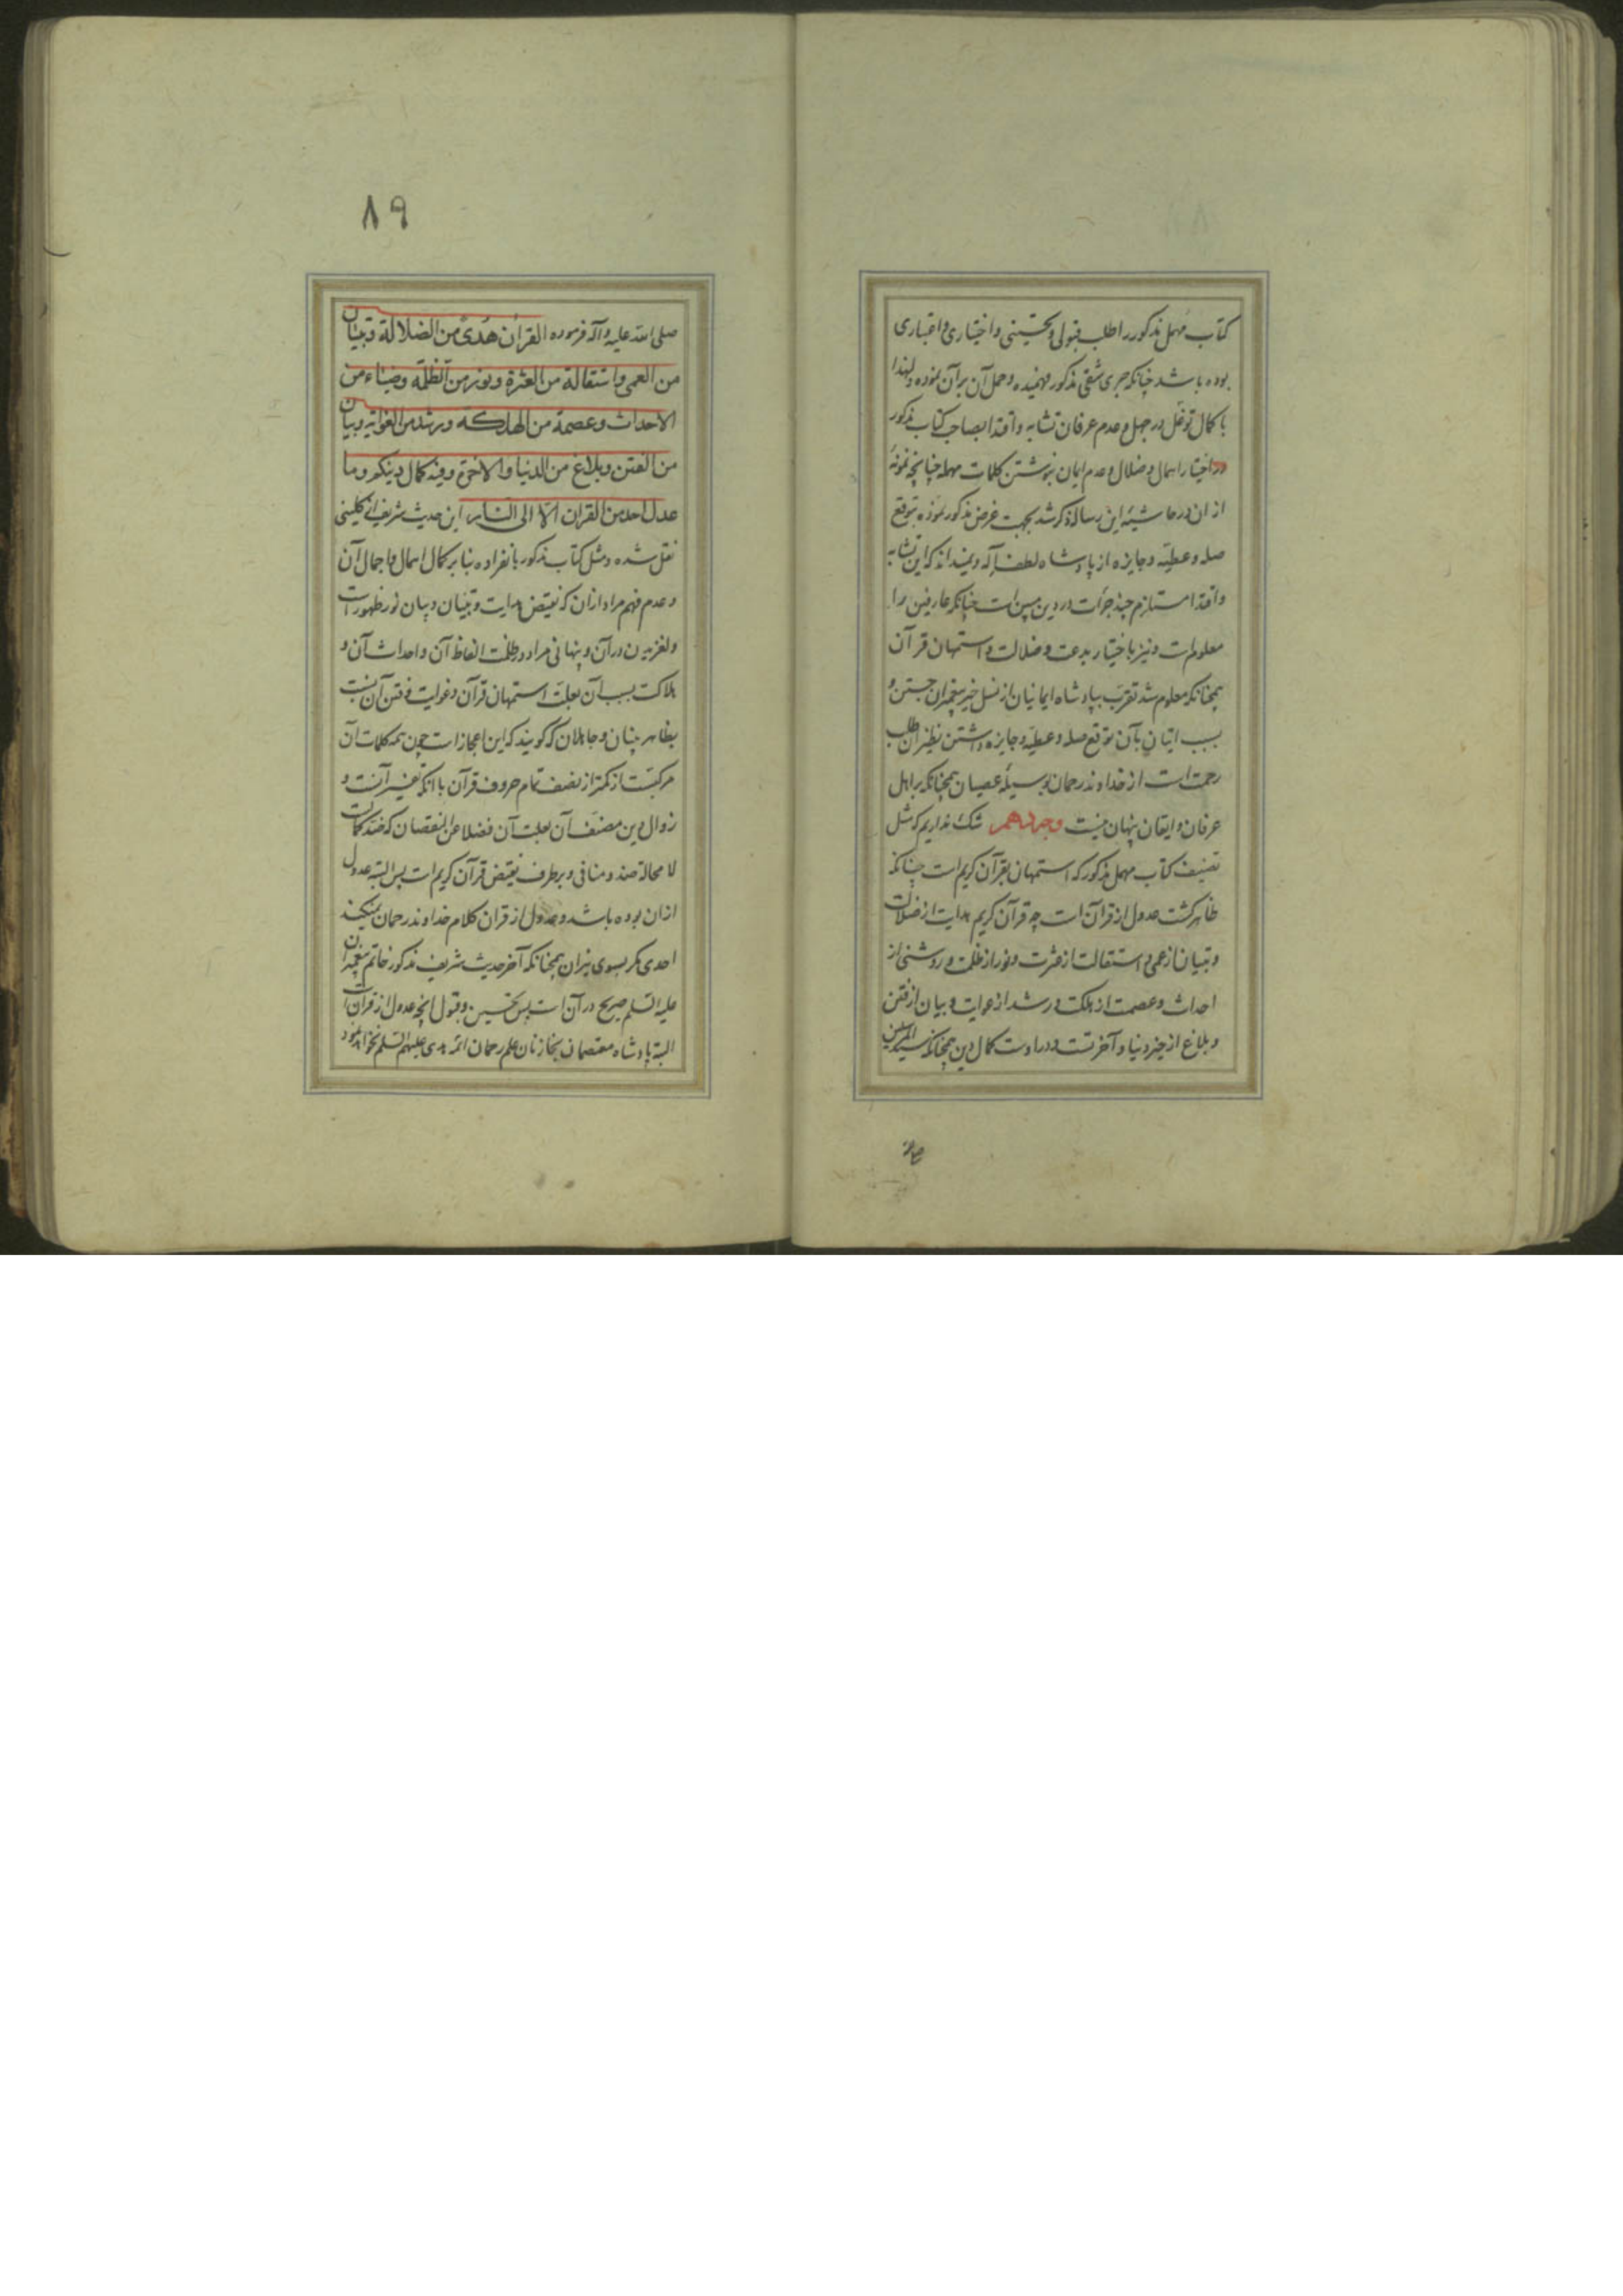 کتاب مهمل مذکور را طلب قبولی و تحسینی و اختیاری و اعتباری
بوده باشد چنانکه جری شقی مذکور فهمیده و حمل آن بر آن نموده و لهذا
با کمال توغل در جهل و عدم عرفان تشابه و اقتدا بصاحب کتاب مذکور
در اختیار اهمال و ضلال و عدم ایمان نوشتن کلمات مهمله چنانچه نمونهٔ
از ان در حاشیهٔ این رساله ذکر شد بجهت غرض مذکور نموده توقع
صله و عطیّه و جایزه از پادشاه لطف‌اله و نمیداند که این تشابه
و اقتدا مستلزم چند جرأت در دین مبین است چنانکه عارفین را
معلومست و نیز باختیار بدعت و ضلالت و استمهان قرآن
همچنانکه معلوم شد تقرب بپادشاه ایمانیان از نسل خیر پیغمبران جستن و
بسبب اتیان بآن توقع صله و عطیّه و جایزه داشتن نظیر آن طلب
رحمت است از خداوند رحمان بوسیلهٔ عصیان همچنانکه بر اهل
عرفان و ایقان پنهان نیست وجه دهم شک نداریم که مثل
تصنیف کتاب مهمل مذکور که استمهان بقرآن کریم است چنانکه
ظاهر گشت عدول از قرآن است چه قرآن کریم هدایت از ضلالت
و تبیان از عمی و استقالت از عثرت و نور از ظلمت و روشنی از
احداث و عصمت از هلکت و رشد از غوایت و بیان از فتن
و بلاغ از حیز دنیا و آخرتست و در اوست کمال دین همچنانکه سید المرسلین
صلی
۸۹
صلی الله علیه و آله فرموده القرآن هدیً من الضلالة و تبیان
من العمی و استقالة من العثرة و نور من الظلمة و ضیاء من
الاحداث و عصمة من الهلکة و رشد من الغوایة و بیان
من الفتن و بلاغ من الدنیا و الآخرة و فیه کمال دینکم و ما
عدل احد من القرآن الّا الی النار این حدیث شریف از کلینی
نقل شده و مثل کتاب مذکور بانفراده بنابر کمال اهمال و اجمال آن
و عدم فهم مراد از ان که نقیض هدایت و تبیان و بیان نور ظهور است
و لغزیدن در آن و پنهانی مراد در ظلمت الفاظ آن و احداث آن و
هلاکت بسبب آن بعلت استمهان قرآن و غوایت و فتن آن نسبت
بظاهر بینان و جاهلان که گویند که این اعجاز است چون همه کلمات آن
مرکبست از کمتر از نصف تمام حروف قرآن با آنکه تفسیر آنست و
زوال دین مصنف آن بعلت آن فضلا عن النقصان که ضد کمالست
لا محالة ضد و منافی و بر طرف نقیض قرآن کریم است پس البته عدول
از ان بوده باشد و عدول از قرآن کلام خداوند رحمان نمیکند
احدی مگر بسوی نیران همچنانکه آخر حدیث شریف مذکور خاتم پیغمبران
علیه السلم صریح در آن است پس تحسین و قبول آنچه عدول از قرآن است
البته پادشاه معتصمان بخازنان علم رحمان ائمه هدی علیهم السلم نخواهد نمود